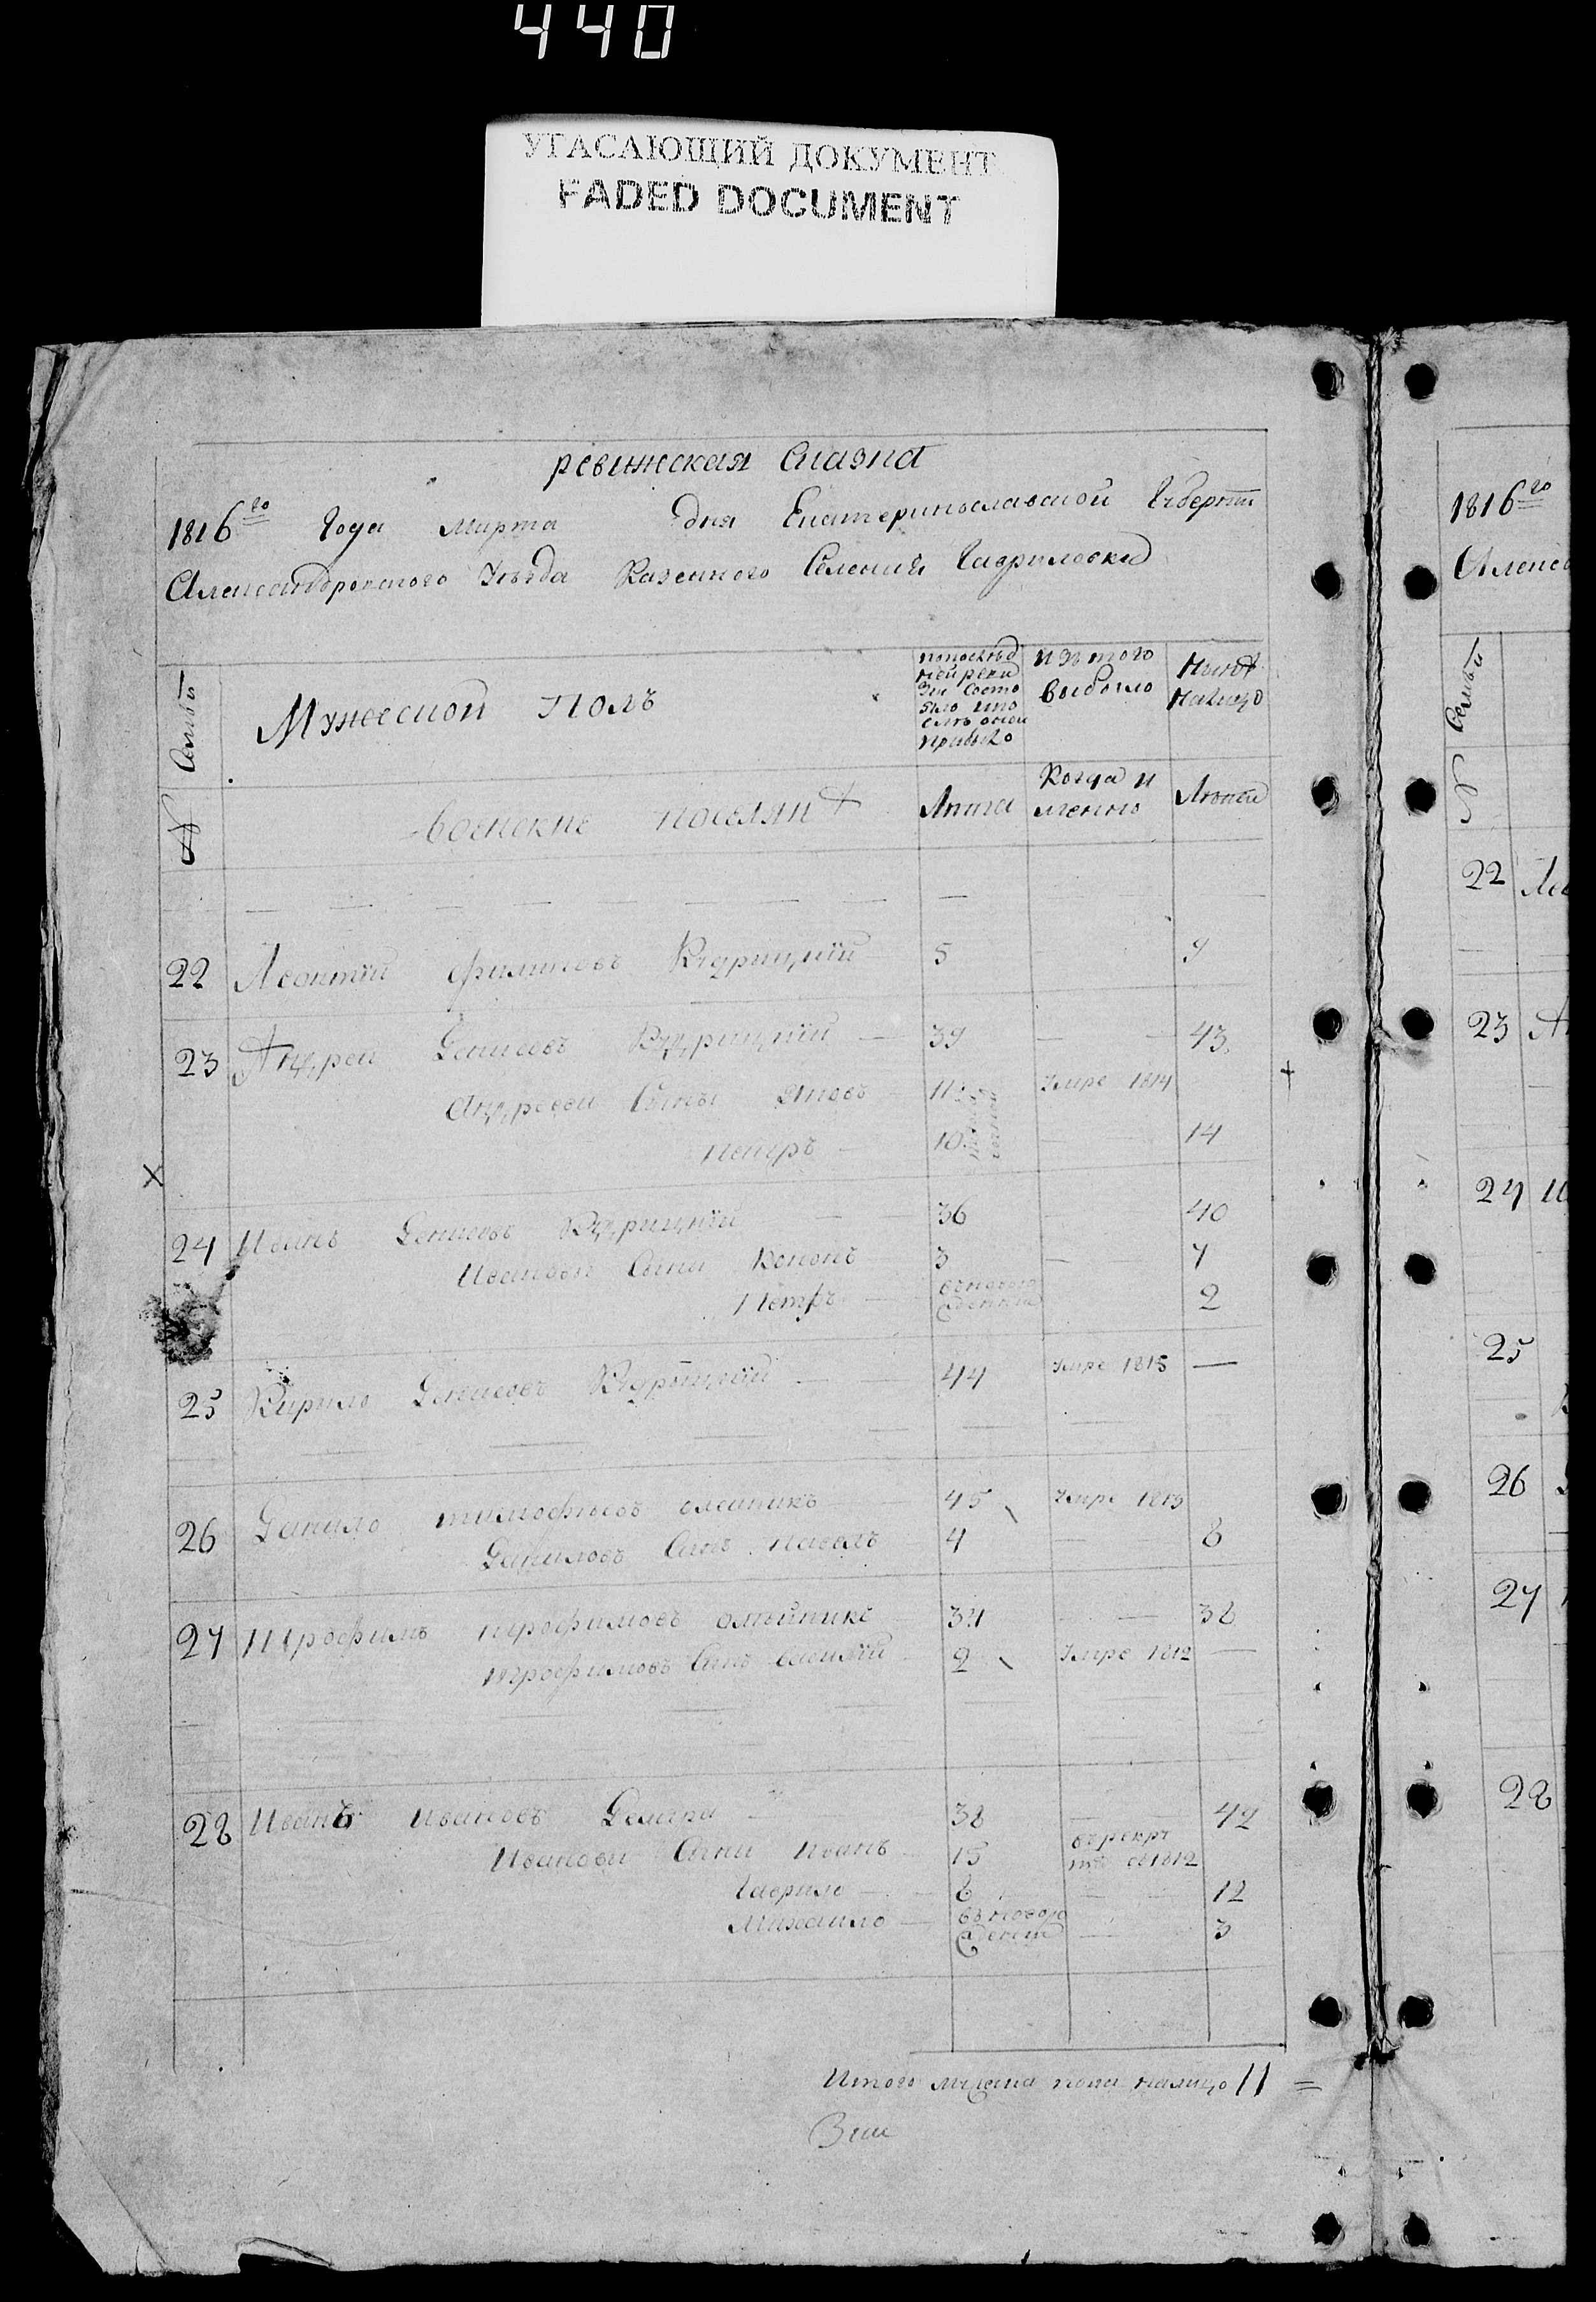 440
УГАСАЮЩИЙ ДОКУМЕНТ
FADED DOCUMENT
ревижская Сказка
1816го Года Марта дня Екатеринославской Губернии
Александровского Уезда Казенного Селения Гавриловки
№ Семьи
Мужеской Полъ
по последней ревизии состояло или после оной прибыло
изъ того выбыло
Ныне налицо
Воинские поселяне
Лета
Когда именно
Летъ
22 Леонтий Филиповъ Кудрицкий 5 9
23 Андрей Денисовъ Кудрицкий 39 43
Андреевы Сыны Яковъ 11 Умре 1814
Петръ 10 14
24 Иванъ Денисовъ Кудрицкий 36 40
Ивановы Сыны Кононъ 3 7
Петръ 2
25 Кирило Денисовъ Кудрицкий 44 Умре 1815
26 Данило Тимофеевъ Олейникъ 45 Умре 1813
Даниловъ Сынъ Павелъ 4 8
27 Трофимъ Трофимовъ Олейникъ 34 38
Трофимовъ Сынъ 2 Умре 1812
28 Иванъ Ивановъ 38 42
Ивановы Сыны Иванъ 15 въ рекруты въ 1812
Гаврило 8 12
Михайло въ новорожденный 3
Итого мужеска пола налицо 11
1816го
22
23
24
25
26
27
28